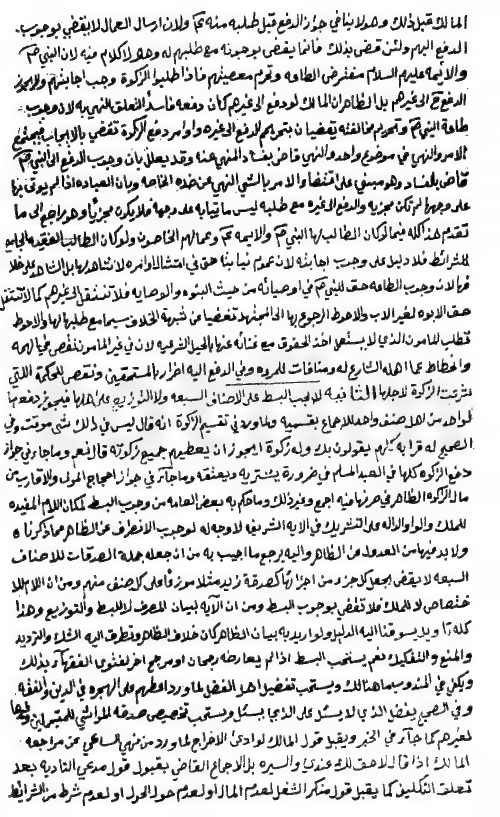 المالك قبل ذلك وهو لا ينافي جواز الدفع قبل طلبه منه عم ولان ارسال العمال لا يقضي بوجوب
الدفع اليهم ولئن قضى بذلك فانما يقضي بوجوبه مع طلبهم له وهو لا كلام فيه لان النبي صم
والائمة عليهم السلام مفترض الطاعه وتحرم معصيتهم فاذا طلبوا الزكوة وجب اجابتهم ولا يجوز
الدفع ح الى غيرهم بل الظاهران المالك لو دفع الى غيرهم كان دفعه فاسداً لتعلق النهي به لان وجوب
طاعة النبي صم وتحريم مخالفته يقضيان بتحريم الدفع الى غيره واوامر دفع الزكوة تقضي بالايجاب فيجتمع
الامر والنهي في موضوع واحد والنهي قاض بفساد المنهي عنه وقد يعلل بان وجوب الدفع الى النبي صم
قاض بالفساد وهو مبني على اقتضاء الامر بالشي النهي عن ضده الخاصه وبان العباده اذا لم يوتى بها
على وجهها لم تكن مجزيه والدفع الى غيره مع طلبه ليس ماتيا به على وجهه فلا يكون مجزيا وهو راجع الى ما
تقدم هذا كله فيما لو كان الطالب لها النبي صم والائمه عم وعمالهم الخاصون ولو كان الطالب الفقيه الجامع
للشرائط فلا دليل على وجوب اجابته لان عموم نيابته حتى في امتثال اوامره لا نشاهدها بل الشاهد على خلا
فها لان وجوب الطاعه حق للنبي صم في اوصيائه من حيث النبوه والوصايه فلا تنتقل الى غيرهم كما لا تنتقل
حق الابوه لغير الاب والاحوط الرجوع بها الى المجتهد تفصيا عن شبهة الخلاف سيما مع طلبها لها والاحوط
تطلب المامون الذي لا يستعمل اخذ الحقوق مع غنائه عنها بالحيل الشرعيه لان في غير المامون نقص في الهمه
وانحطاط عما اهله الشارع له ومنافات للمروه وفي الدفع اليه اضرار بالمستحقين ونقص للحكمة التي
شرعت الزكوة لاجلها الثانيه لا يجب البسط على الاصناف السبعه ولا التوزيع على اهلها فيجوز دفعها
لواحد من اهل صنف واحد للاجماع بقسميه ولما ورد في تقسيم الزكوة انه قال ليس في ذلك شي موقت وفي
الصحيح له قرابه كلهم يقولون بك وله زكوة ايجوز ان يعطيهم جميع زكوته قال نعم وما جاء في جواز
دفع الزكوه كلها في العبد المسلم في ضرورة يشتريه ويعتقه وما جاء في جواز احجاج المولى والاقارب من
مال الزكوه الظاهر في صرفها فيه اجمع وغير ذلك وما حكم به بعض العامه من وجوب البسط لمكان اللام المفيده
للملك والواو الداله على التشريك في الايه الشريفه لا وجه له لوجوب الانصراف عن الظاهر مما ذكرناه
ولا بد فيها من العدول عن الظاهر واليه يرجع ما اجيب به من ان جعله جملة الصدقات للاصناف
السبعه لا يقضي بجعل كل جزء من اجزائها كصدقة زيد مثلا موزعا على كل صنف منهم ومن ان اللام للا
ختصاص لا للملك فلا تقضي بوجوب البسط ومن ان الآيه لبيان المصرف لا للبسط والتوزيع وهذا
والمنع والتفكيك نعم يستحب البسط اذا لم يعارضه رجحان او مرجح اخر لفتوى الفقهاء بذلك
ويستحب تفضيل اهل الفضل لما ورد اعطهم على الهجره في الدين والفقه
وفي الصحيح يفضل الذي لا يسئل على الذي يسئل ويستحب تخصيص صدقة المواشي للمتجملين
لغيرهم كما جاء في الخبر ويقبل قول المالك لو ادعى الاخراج لما ورد من نهي الساعي عن مراجعه
المالك اذا قال لا حق لك عندي والسيره بل الاجماع القاضي بقبول قول مدعي التاديه بعد
تعلق التكليف كما يقبل قول منكر الشغل لعدم المال او لعدم حول الحول او لعدم شرط من الشرائط